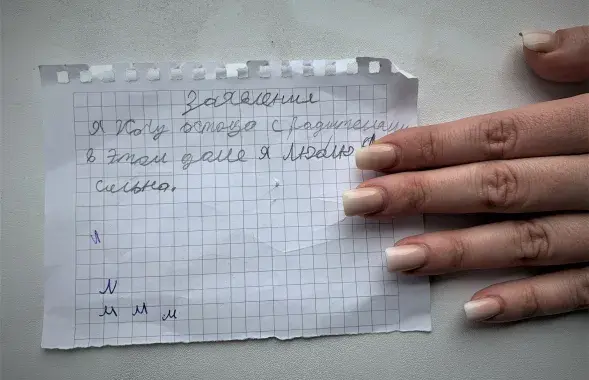 Заявления
Я Хочу остаца с радителями
в этом доме я люблю
сильно.
и
N
м м м